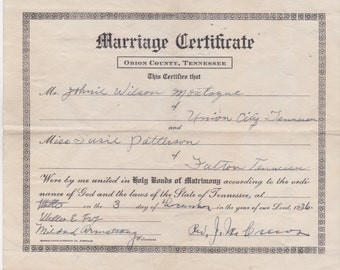 Marriage Certificate
OBION COUNTY, TENNESSEE
This Certifies that
Mr. Johnie Wilson
of
Union City Tennessee
and
Miss Susie Patterson
of
Tennessee
Were by me united in Holy Bonds of Matrimony according to the ordi-
nance of God and the laws of the State of Tennessee, at
on the 3 day of in the year of our Lord, 1936
Mildred Armstrong
Witnesses
Rev. J.